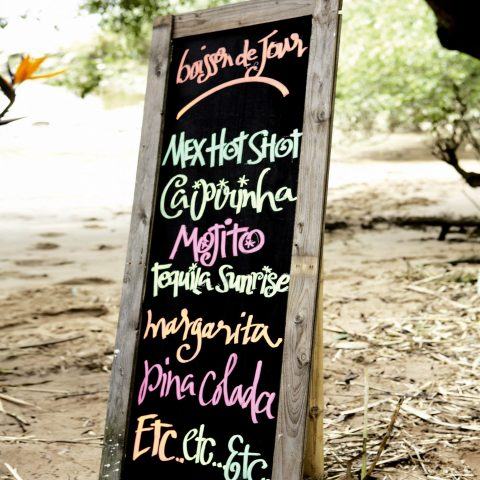 boisson de Jour
Mex Hot Shot
Caipirinha
Mojito
Tequila Sunrise
margarita
pina colada
Etc.. etc.. Etc..